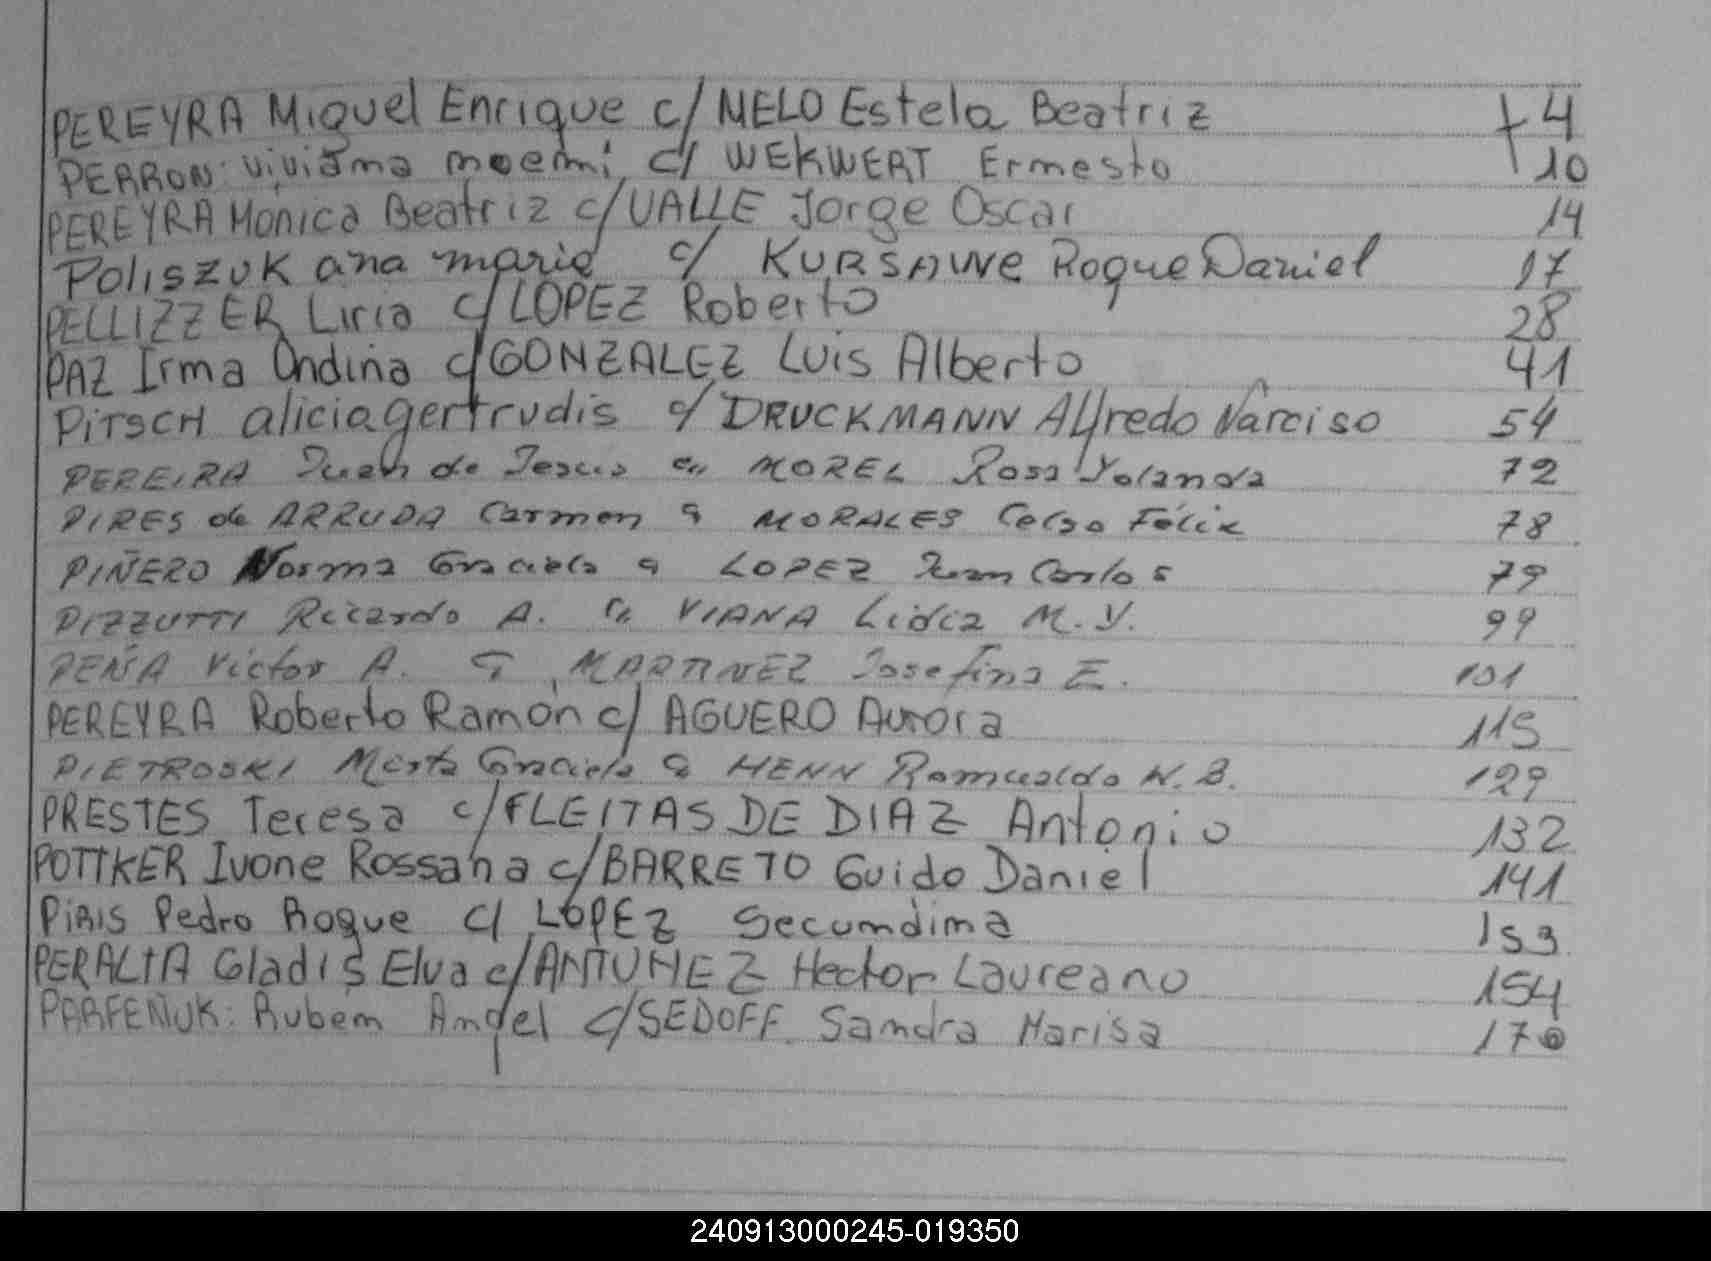 PEREYRA Miguel Enrique c/ MELO Estela Beatriz 4
PERRON: Viviana Noemi c/ WEKWERT Ernesto 10
PEREYRA Monica Beatriz c/ VALLE Jorge Oscar 14
POLISZUK ana maria c/ KURSAWE Roque Daniel 17
PELLIZZER Liria c/ LOPEZ Roberto 28
PAZ Irma Ondina c/ GONZALEZ Luis Alberto 41
PITSCH alicia gertrudis c/ DRUCKMANN Alfredo Narciso 54
PEREIRA Juan de Jesus c/ MOREL Rosa Yolanda 72
PIRES de ARRUDA Carmen c/ MORALES Celso Félix 78
PIÑERO Norma Graciela c/ LOPEZ Juan Carlos 79
PIZZUTTI Ricardo A. c/ VIANA Lidia M. Y. 99
PEÑA Victor A. c/ MARTINEZ Josefina E. 101
PEREYRA Roberto Ramón c/ AGUERO Aurora 115
PIETROSKI Marta Graciela c/ HENN Romualdo W. B. 129
PRESTES Teresa c/ FLEITAS DE DIAZ Antonio 132
POTTKER Ivone Rossana c/ BARRETO Guido Daniel 141
PIRIS Pedro Roque c/ LOPEZ Secundina 153
PERALTA Gladis Elva c/ ANTUNEZ Hector Laureano 154
PARFEÑUK: Ruben Angel c/ SEDOFF Sandra Marisa 170
240913000245-019350